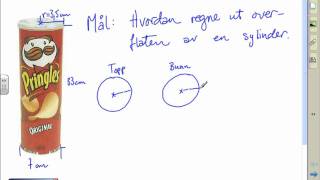 r=3,5cm
Mål: Hvordan regne ut over-
flaten av en sylinder.
Topp
Bunn
Pringles
ORIGINAL
7cm